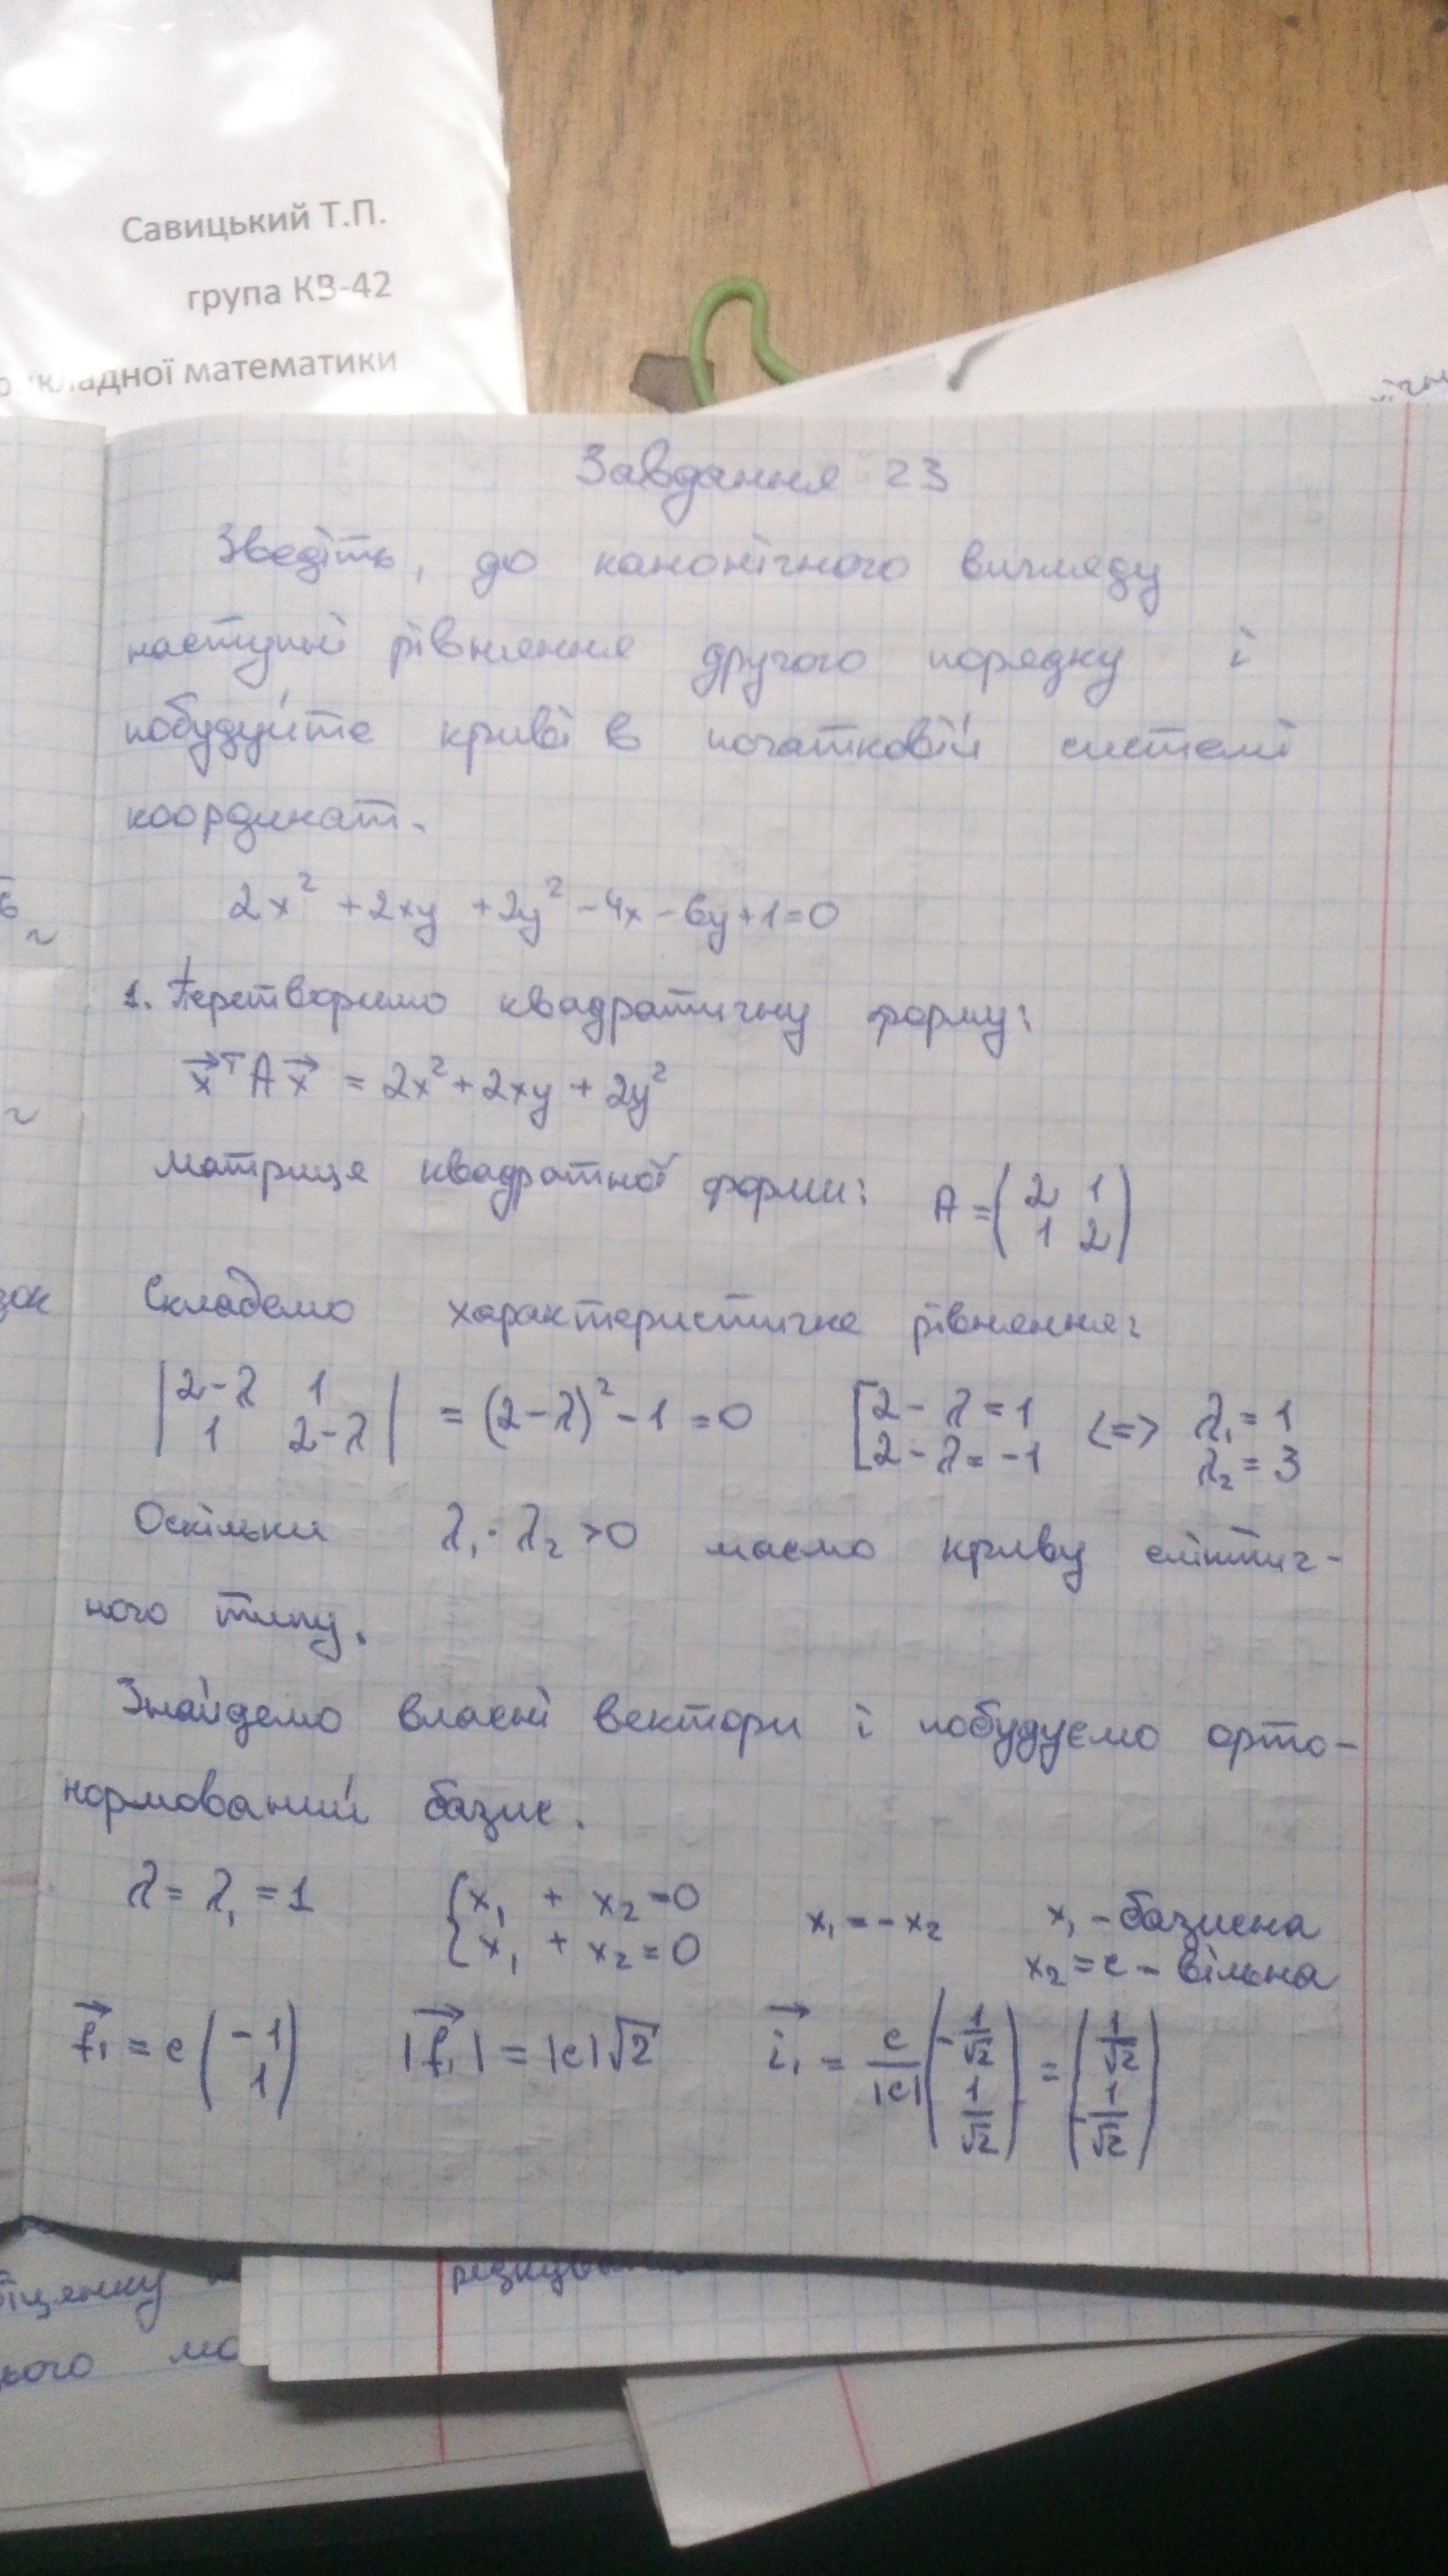 Савицький Т.П.
група КВ-42
кладної математики
Завдання 23
Зведіть, до канонічного вигляду
наступні рівняння другого порядку і
побудуйте криві в початковій системі
координат.
2x² + 2xy + 2y² - 4x - 6y + 1 = 0
1. Перетворимо квадратичну форму:
x⃗ᵀ A x⃗ = 2x² + 2xy + 2y²
матриця квадратної форми: A = (2 1; 1 2)
Складемо характеристичне рівняння:
|2-λ 1; 1 2-λ| = (2-λ)² - 1 = 0 [2-λ = 1; 2-λ = -1 <=> λ₁ = 1; λ₂ = 3
Оскільки λ₁ · λ₂ > 0 маємо криву еліптич-
ного типу.
Знайдемо власні вектори і побудуємо орто-
нормований базис.
λ = λ₁ = 1 {x₁ + x₂ = 0; x₁ + x₂ = 0 x₁ = -x₂ x₁ - базисна
x₂ = c - вільна
f⃗₁ = c(-1; 1) |f⃗₁| = |c|√2 i⃗₁ = c/|c| (-1/√2; 1/√2) = (1/√2; -1/√2)